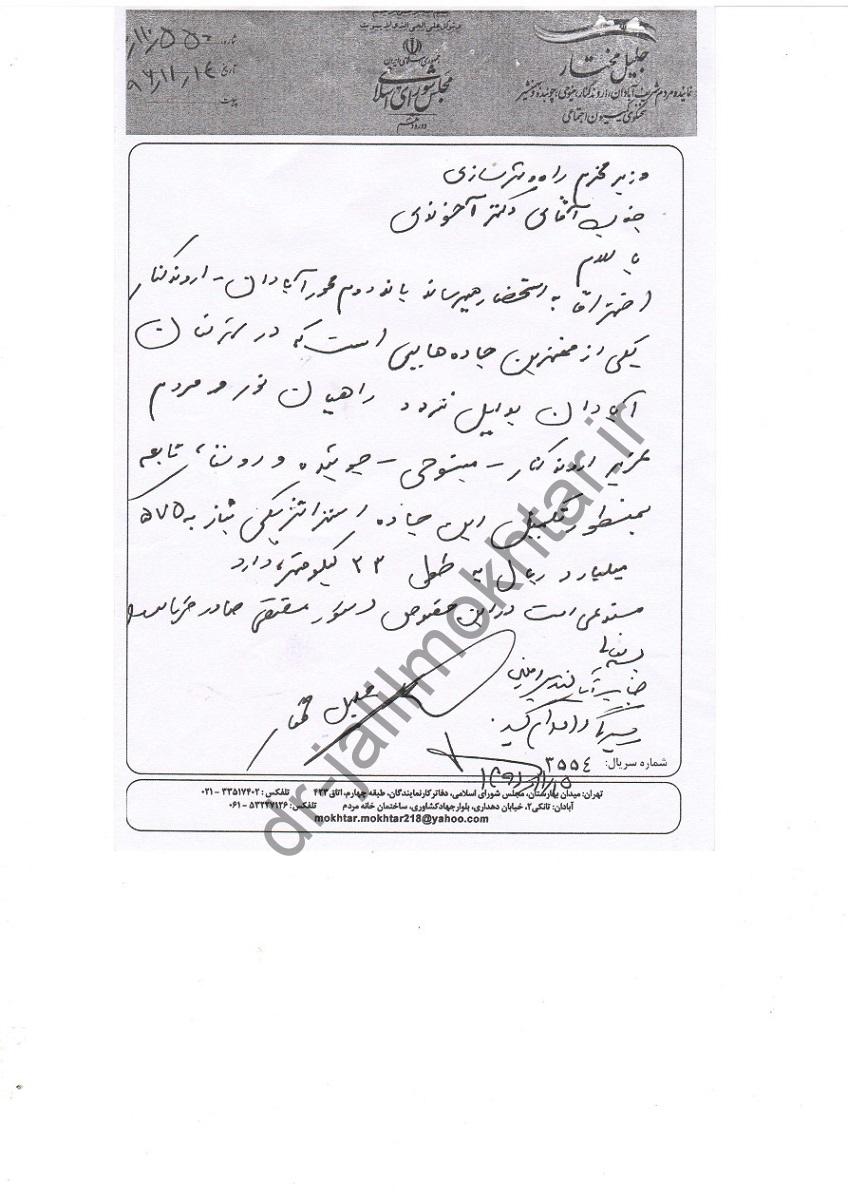 جلیل مختار
نماینده مردم شریف آبادان، اروندکنار، مینوحی، چوئبده و خسر
سخنگوی کمیسیون اجتماعی
وتوکل علی الحی الذی لا یموت
جمهوری اسلامی ایران
مجلس شورای اسلامی
دوره دهم
شماره: ۱۱۰/۵۵۰
تاریخ: ۹۶/۱۱/۱۴
پیوست
وزیر محترم راه و شهرسازی
جناب آقای دکتر آخوندی
با سلام
احتراما به استحضار میرساند باند دوم محور آبادان - اروندکنار
یکی از مهمترین جاده هایی است که در شهرستان
آبادان بدلیل تردد راهیان نور و مردم
عزیز اروندکنار - مینوحی - چویبده و روستاهای تابعه
بمنظور تکمیل این جاده استراتژیکی نیاز به ۵۷۵
میلیارد ریال به طول ۳۳ کیلومتر دارد
مستدعی است در این خصوص دستور مقتضی صادر فرمائید
جلیل مختار
جناب آقای
اقدام کنید.
شماره سریال: ۳۵۵۴
تهران: میدان بهارستان، مجلس شورای اسلامی، دفاتر کارنمایندگان، طبقه چهارم، اتاق ۴۲۳ تلفکس: ۳۳۵۱۷۴۰۲ - ۰۲۱
آبادان: تانکی۲، خیابان دهداری، بلوار جهادکشاورزی، ساختمان خانه مردم تلفکس: ۵۳۲۴۷۱۲۶ - ۰۶۱
mokhtar.mokhtar218@yahoo.com
dr-jalilmokhtar.ir